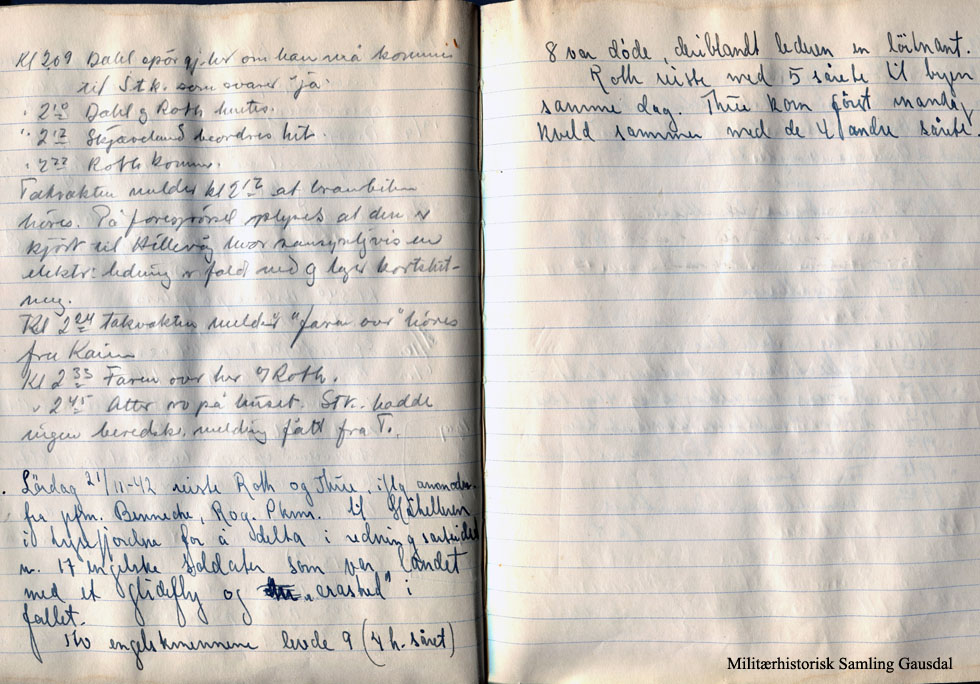 Kl 209 Dahl spør gj.ler om han må komme
til Stk. som svarer "ja"
" 2 10 Dahl og Roth hentes.
" 2 17 Skjæveland beordres hit.
" 2 22 Roth kommer.
Takvakten melder kl 2 17 at brannbilen
høres. På forespørsel oplyses at den er
kjørt til Hillevåg hvor sansynligvis en
elektr: ledning er fald ned og lager kortslut-
ning.
Kl 2 24 Takvakten melder "faren over" høres
fra
Kl 2 33 Faren over her Roth.
" 2 45 Atter ro på huset. Stk. hadde
ingen beredsk. melding fått fra T.
Lördag 21/11-42 reiste Roth og Thue, iflg
fra pfm. Bennecke, Rog. Pkm. til Håhelleren
i Lysefjordne for å delta i redningsarbeidet
m. 17 engelske soldater som var landet
med et glidefly og "crashed" i
fallet.
Av engelskmennene levde 9 (4 h. såret)
8 var döde, deriblandt lederen en löitnant.
Roth reiste med 5 sårete til byen
samme dag. Thue kom först mandag
kveld sammen med de 4 andre sårete.
Militærhistorisk Samling Gausdal